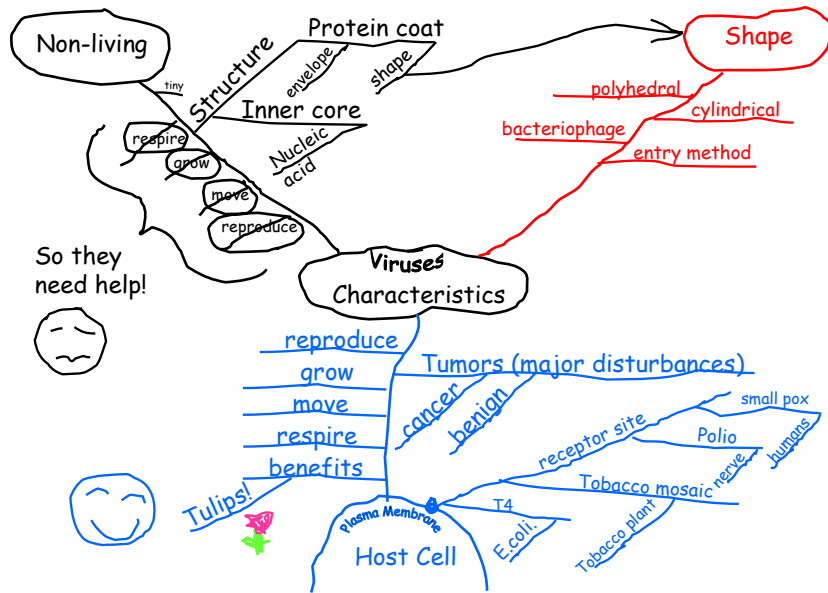 Non-living
tiny
Structure
Protein coat
envelope
shape
Inner core
Nucleic
acid
respire
grow
move
reproduce
So they
need help!
Shape
polyhedral
cylindrical
bacteriophage
entry method
Viruses
Characteristics
reproduce
grow
move
respire
benefits
Tulips!
Tumors (major disturbances)
cancer
benign
receptor site
small pox
humans
Polio
nerve
Tobacco mosaic
Tobacco plant
T4
E.coli.
Plasma Membrane
Host Cell